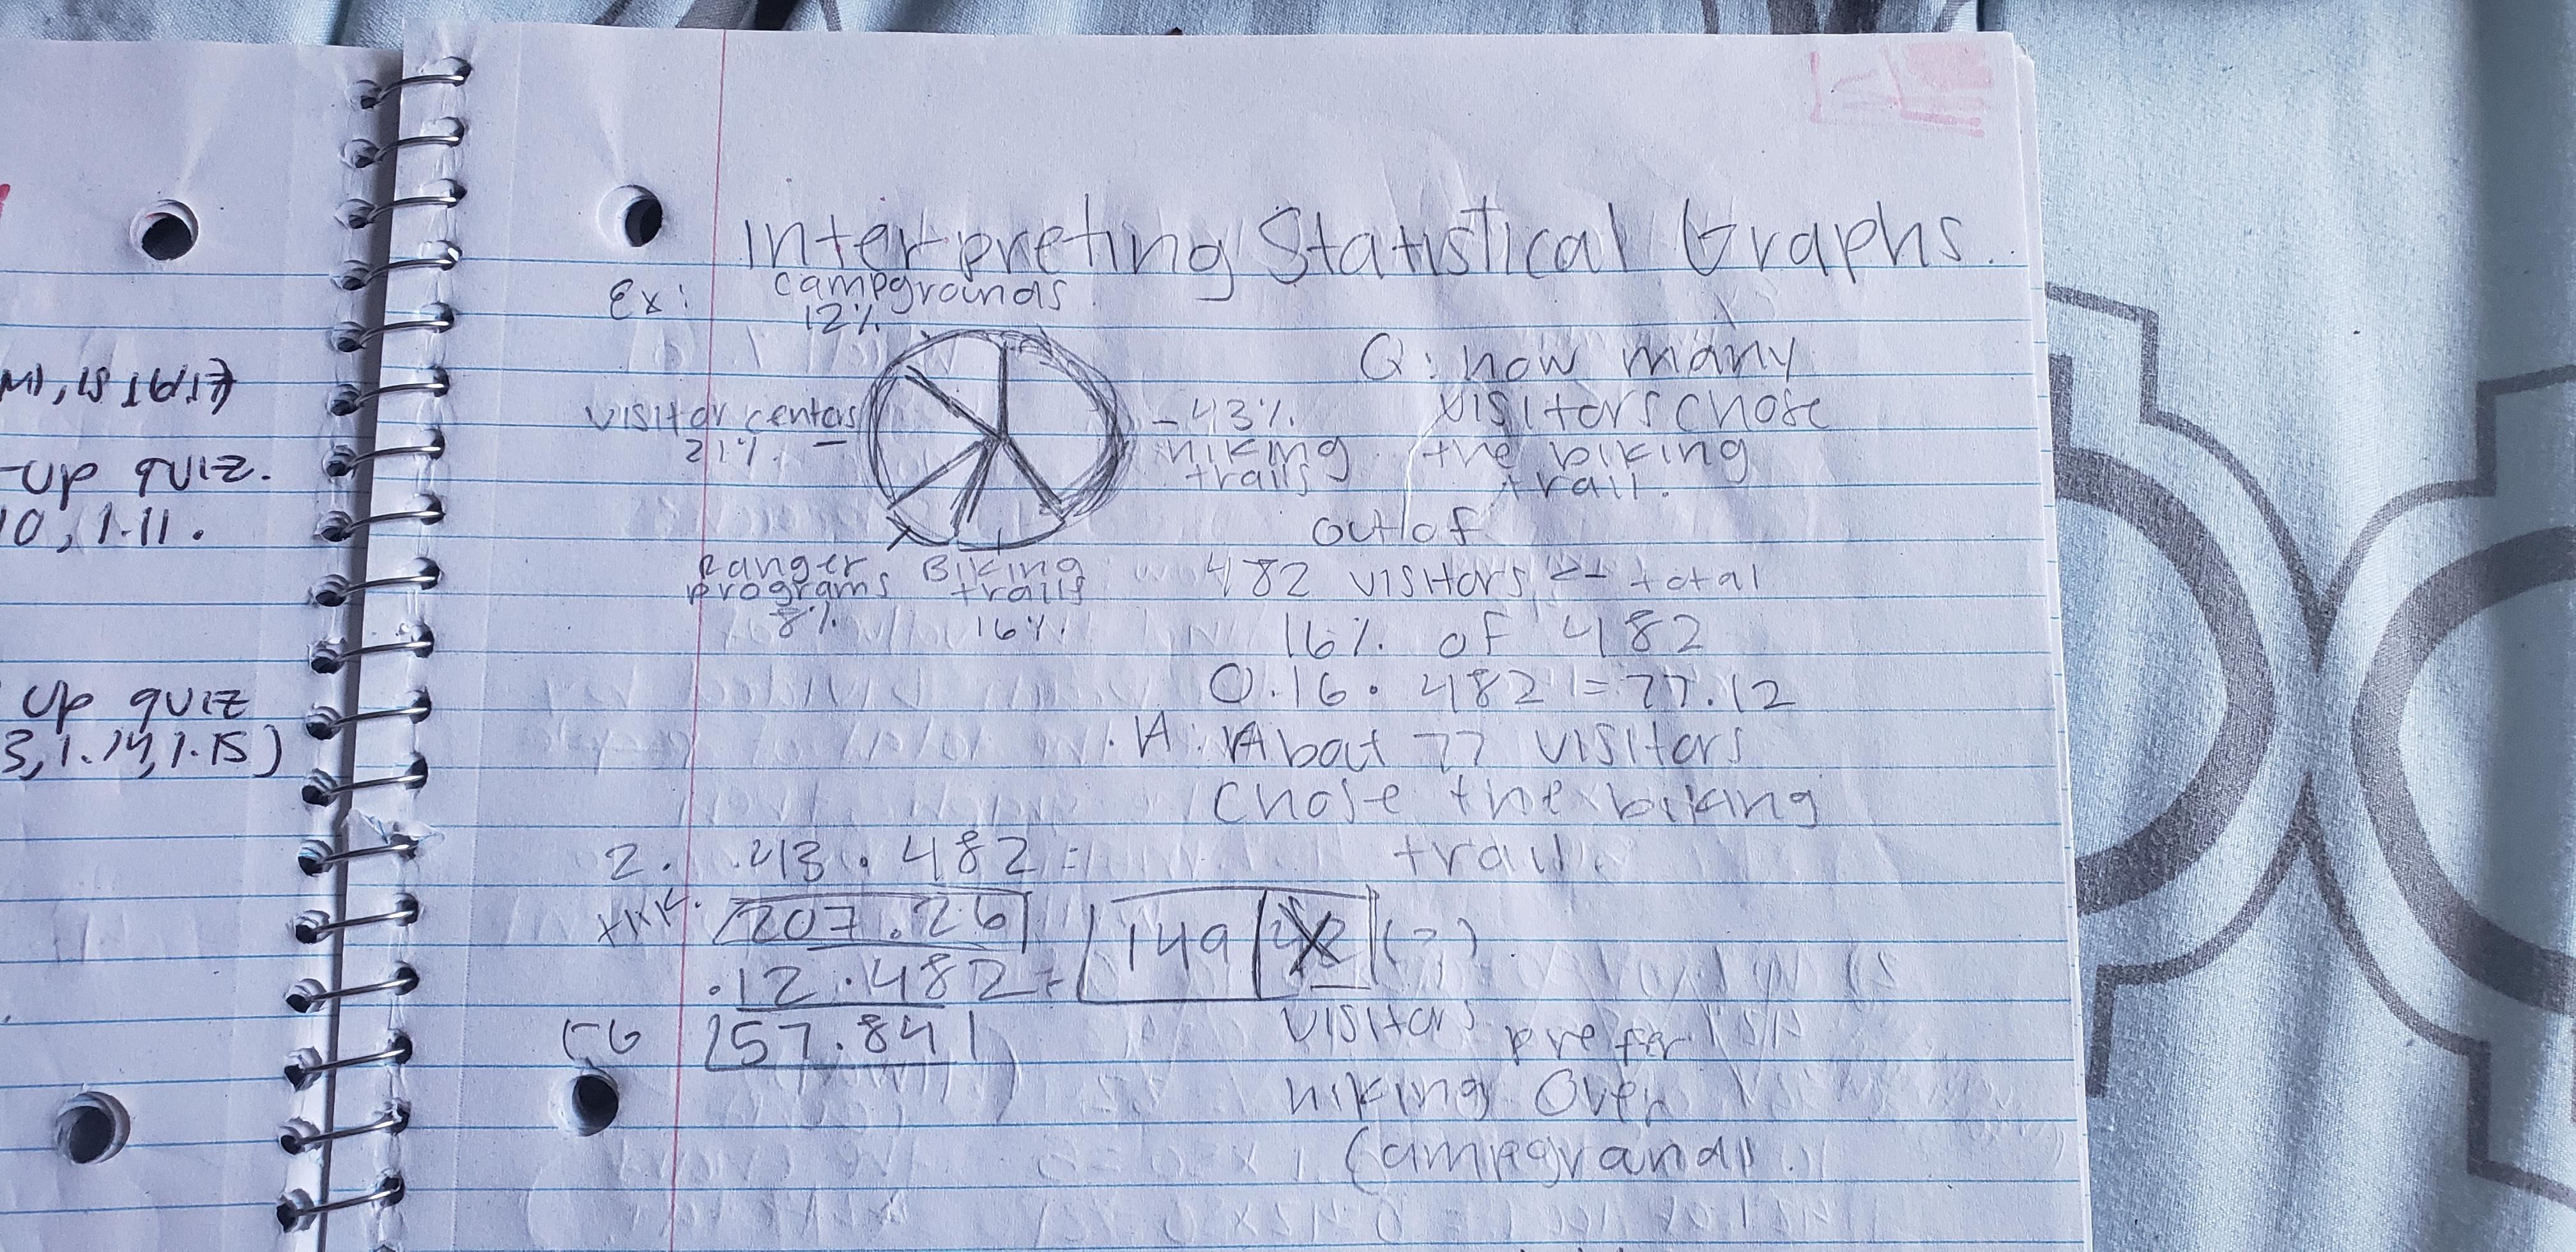 Interpreting Statistical Graphs.
Ex:
campgrounds
12%
visitor centers
21%
- 43%
hiking
trails
Ranger
programs
8%
Biking
trails
16%
Q: how many
visitors chose
the biking
trail.
out of
482 visitors <- total
16% of 482
0.16 • 482 = 77.12
A: About 77 visitors
chose the biking
trail.
2. .43 • 482 =
207.26
.12 • 482 =
57.84
149
visitors prefer
hiking over
campgrounds.
-up quiz.
10, 1.11.
up quiz
3, 1.14, 1.15)